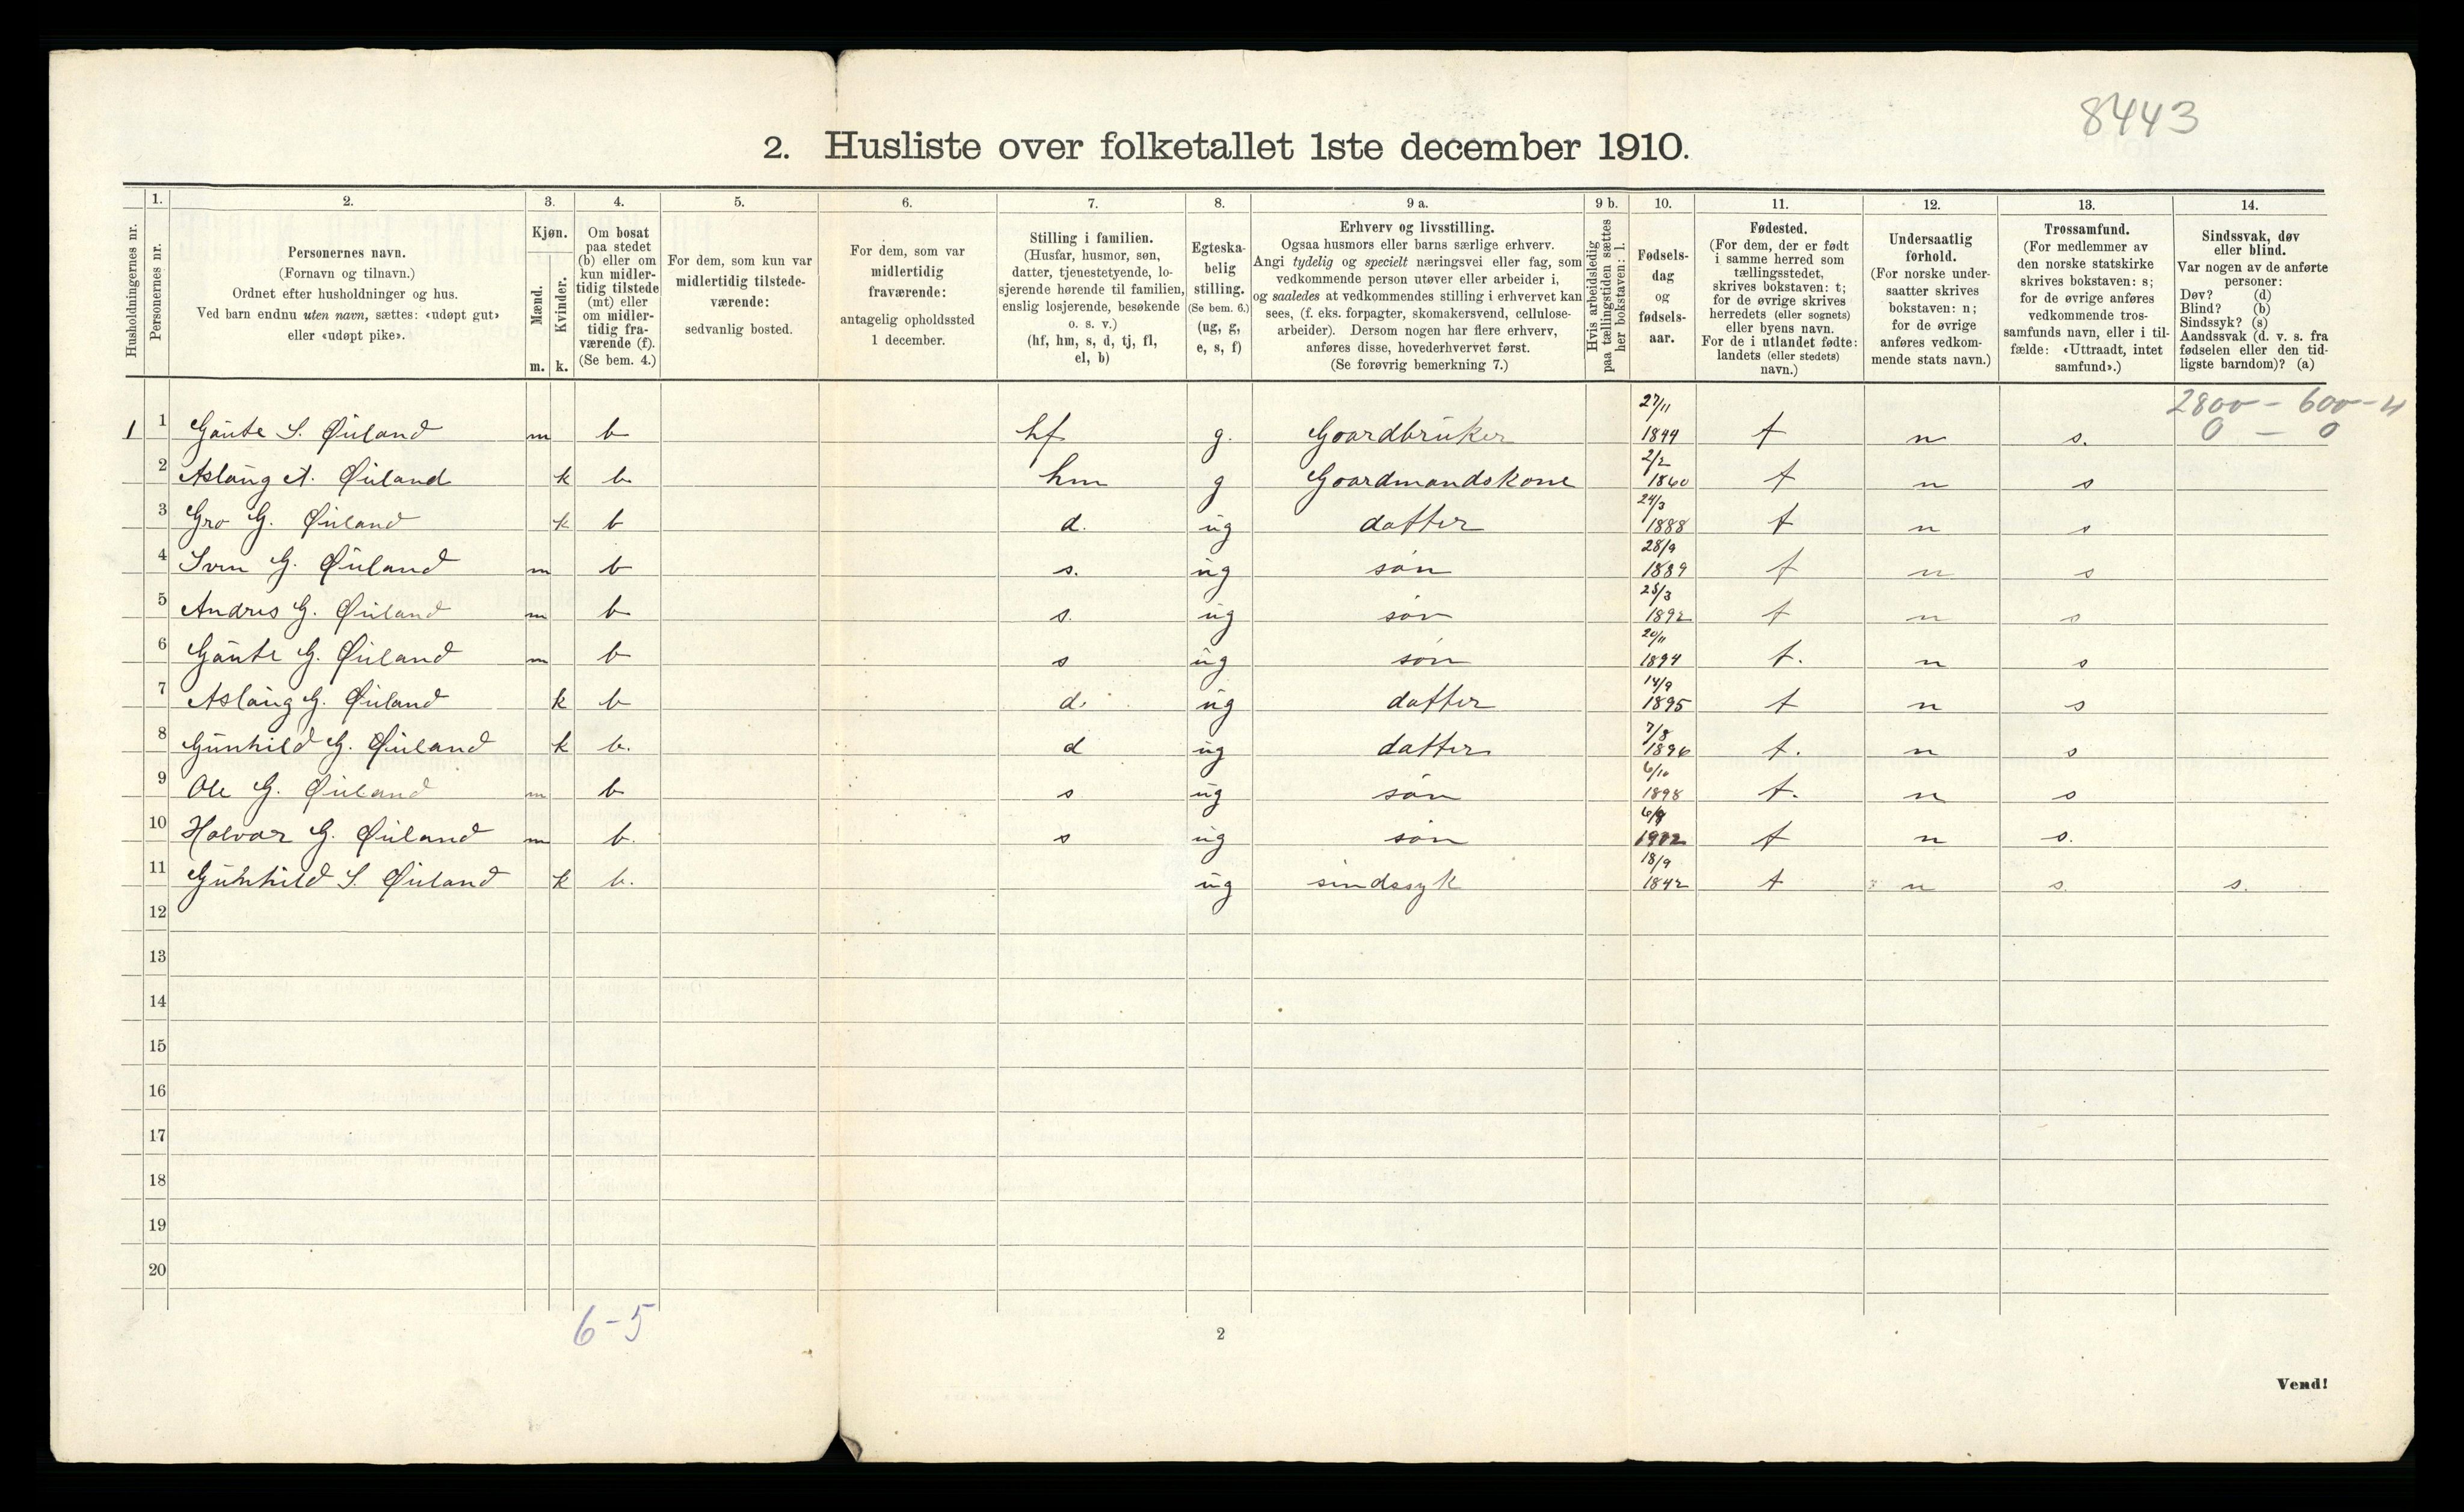 8443
2. Husliste over folketallet 1ste december 1910.
Husholdningernes nr.
1.
Personernes nr.
2.
Personernes navn.
(Fornavn og tilnavn.)
Ordnet efter husholdninger og hus.
Ved barn endnu uten navn, sættes: «udøpt gut»
eller «udøpt pike».
3.
Kjøn.
Mænd.
Kvinder.
m. k.
4.
Om bosat
paa stedet
(b) eller om
kun midler-
tidig tilstede
(mt) eller
om midler-
tidig fra-
værende (f).
(Se bem. 4.)
5.
For dem, som kun var
midlertidig tilstede-
værende:
sedvanlig bosted.
6.
For dem, som var
midlertidig
fraværende:
antagelig opholdssted
1 december.
7.
Stilling i familien.
(Husfar, husmor, søn,
datter, tjenestetyende, lo-
sjerende hørende til familien,
enslig losjerende, besøkende
o. s. v.)
(hf, hm, s, d, tj, fl,
el, b)
8.
Egteska-
belig
stilling.
(Se bem. 6.)
(ug, g,
e, s, f)
9 a.
Erhverv og livsstilling.
Ogsaa husmors eller barns særlige erhverv.
Angi tydelig og specielt næringsvei eller fag, som
vedkommende person utøver eller arbeider i,
og saaledes at vedkommendes stilling i erhvervet kan
sees, (f. eks. forpagter, skomakersvend, cellulose-
arbeider). Dersom nogen har flere erhverv,
anføres disse, hovederhvervet først.
(Se forøvrig bemerkning 7.)
9 b.
Hvis arbeidsledig
paa tællingstiden sættes
her bokstaven: l.
10.
Fødsels-
dag
og
fødsels-
aar.
11.
Fødested.
(For dem, der er født
i samme herred som
tællingsstedet,
skrives bokstaven: t;
for de øvrige skrives
herredets (eller sognets)
eller byens navn.
For de i utlandet fødte:
landets (eller stedets)
navn.)
12.
Undersaatlig
forhold.
(For norske under-
saatter skrives
bokstaven: n;
for de øvrige
anføres vedkom-
mende stats navn.)
13.
Trossamfund.
(For medlemmer av
den norske statskirke
skrives bokstaven: s;
for de øvrige anføres
vedkommende tros-
samfunds navn, eller i til-
fælde: «Uttraadt, intet
samfund».)
14.
Sindssvak, døv
eller blind.
Var nogen av de anførte
personer:
Døv? (d)
Blind? (b)
Sindssyk? (s)
Aandssvak (d. v. s. fra
fødselen eller den tid-
ligste barndom)? (a)
2800 - 600 - 4
0 - 0
1 1 Gaute S. Øiland m b hf g. Gaardbruker 27/11 1844 t n s.
2 Aslaug A. Øiland k b. hm g Gaardmandskone 2/2 1860 t n s
3 Gro G. Øiland k b d. ug datter 24/3 1888 t n s
4 Sven G. Øiland m b s. ug søn 28/9 1889 t n s
5 Andres G. Øiland m b s. ug søn 28/3 1892 t n s
6 Gaute G. Øiland m b s ug søn 20/11 1894 t. n s
7 Aslaug G. Øiland k b d. ug datter 14/9 1895 t n s
8 Gunhild G. Øiland k b. d ug datter 7/8 1896 t. n s
9 Ole G. Øiland m b s ug søn 6/10 1898 t. n s
10 Halvor G. Øiland m b. s ug søn 1902 t n s.
11 Gunhild S. Øiland k b. ug sindssyk 18/9 1842 t n s. s.
12
13
14
15
16
17
18
19
20
6-5
2
Vend!